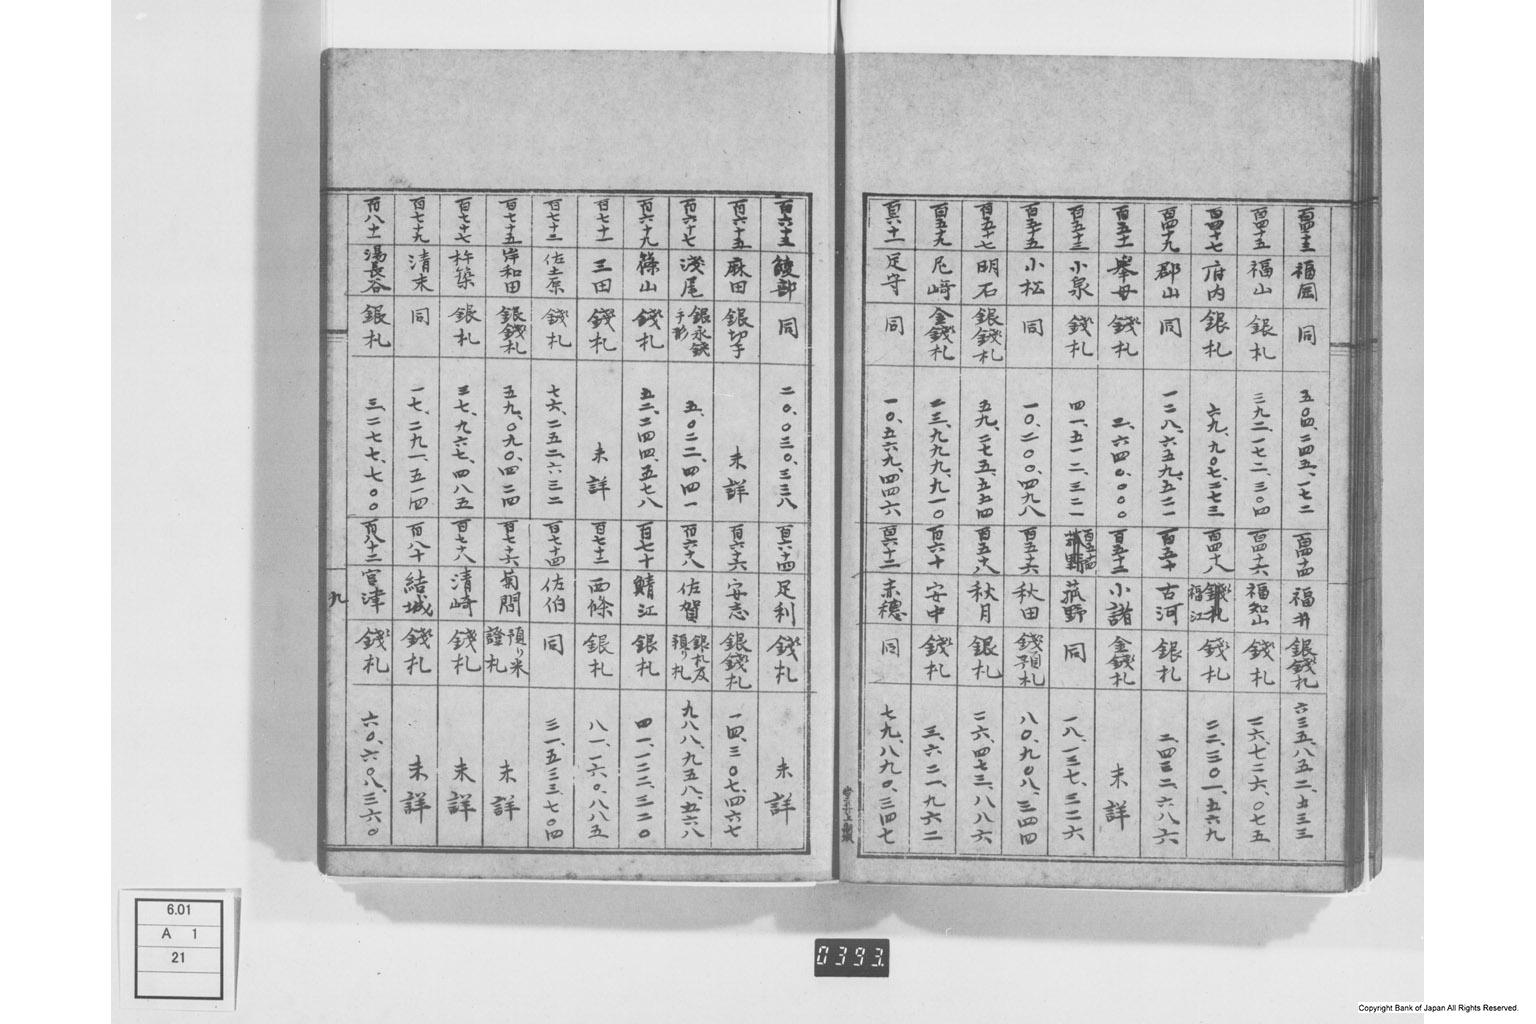 百四十三 福岡 同 五〇四、二四五、一七二
百四十四 福井 銀銭札 六三五、八五二、五三三
百四十五 福山 銀札 三九二、一七二、三〇四
百四十六 福知山 銭札 二六七二六、〇七五
百四十七 府内 銀札 六九、九〇七、二七三
百四十八 福江 銭札 二二、三三〇一、五六九
百四十九 郡山 同 一二八、六五九、五二一
百五十 古河 銀札 二、四三二、六八六
百五十一 挙母 銭札 二、六四〇、〇〇〇
百五十二 小諸 金銭札 未詳
百五十三 小泉 銭札 四一、五一二、三二一
百五十四 菰野 同 一八、一三七、三二六
百五十五 小松 同 一〇、二〇〇、四九八
百五十六 秋田 銭預札 八〇、九〇八、三四四
百五十七 明石 銀銭札 五九、二七五、五五四
百五十八 秋月 銀札 二六、四七三、八八六
百五十九 尼崎 金銭札 二三、九九九、九一〇
百六十 安中 銭札 三、六二一、九六二
百六十一 足守 同 一〇、五六九、四四六
百六十二 赤穂 同 七九、八九〇、三四七
百六十三 綾部 同 二〇、〇三〇、三三八
百六十四 足利 銭札 未詳
百六十五 麻田 銀切手 未詳
百六十六 安志 銀銭札 一四、三〇七、四六七
百六十七 浅尾 銀永銭手形 五、〇二二、四四一
百六十八 佐賀 銀札及預り札 九八八、九五八、五六八
百六十九 篠山 銭札 五二、二四四、五七八
百七十 鯖江 銀札 四一、一三二、三二〇
百七十一 三田 銭札 未詳
百七十二 西條 銀札 八一、一六〇、八八五
百七十三 佐土原 銭札 七六、二五二、六三二
百七十四 佐伯 同 三一、五三三、七〇四
百七十五 岸和田 銀銭札 五九、〇九〇、四二四
百七十六 菊間 預り米證札 未詳
百七十七 杵築 銀札 三七、九六七、四八五
百七十八 清崎 銭札 未詳
百七十九 清末 同 一七、二九一、五一四
百八十 結城 銭札 未詳
百八十一 湯長谷 銀札 三、二七七、七〇〇
百八十二 宮津 銭札 六〇、六〇八、三六〇
九
6.01
A 1
21
0393
Copyright Bank of Japan All Rights Reserved.